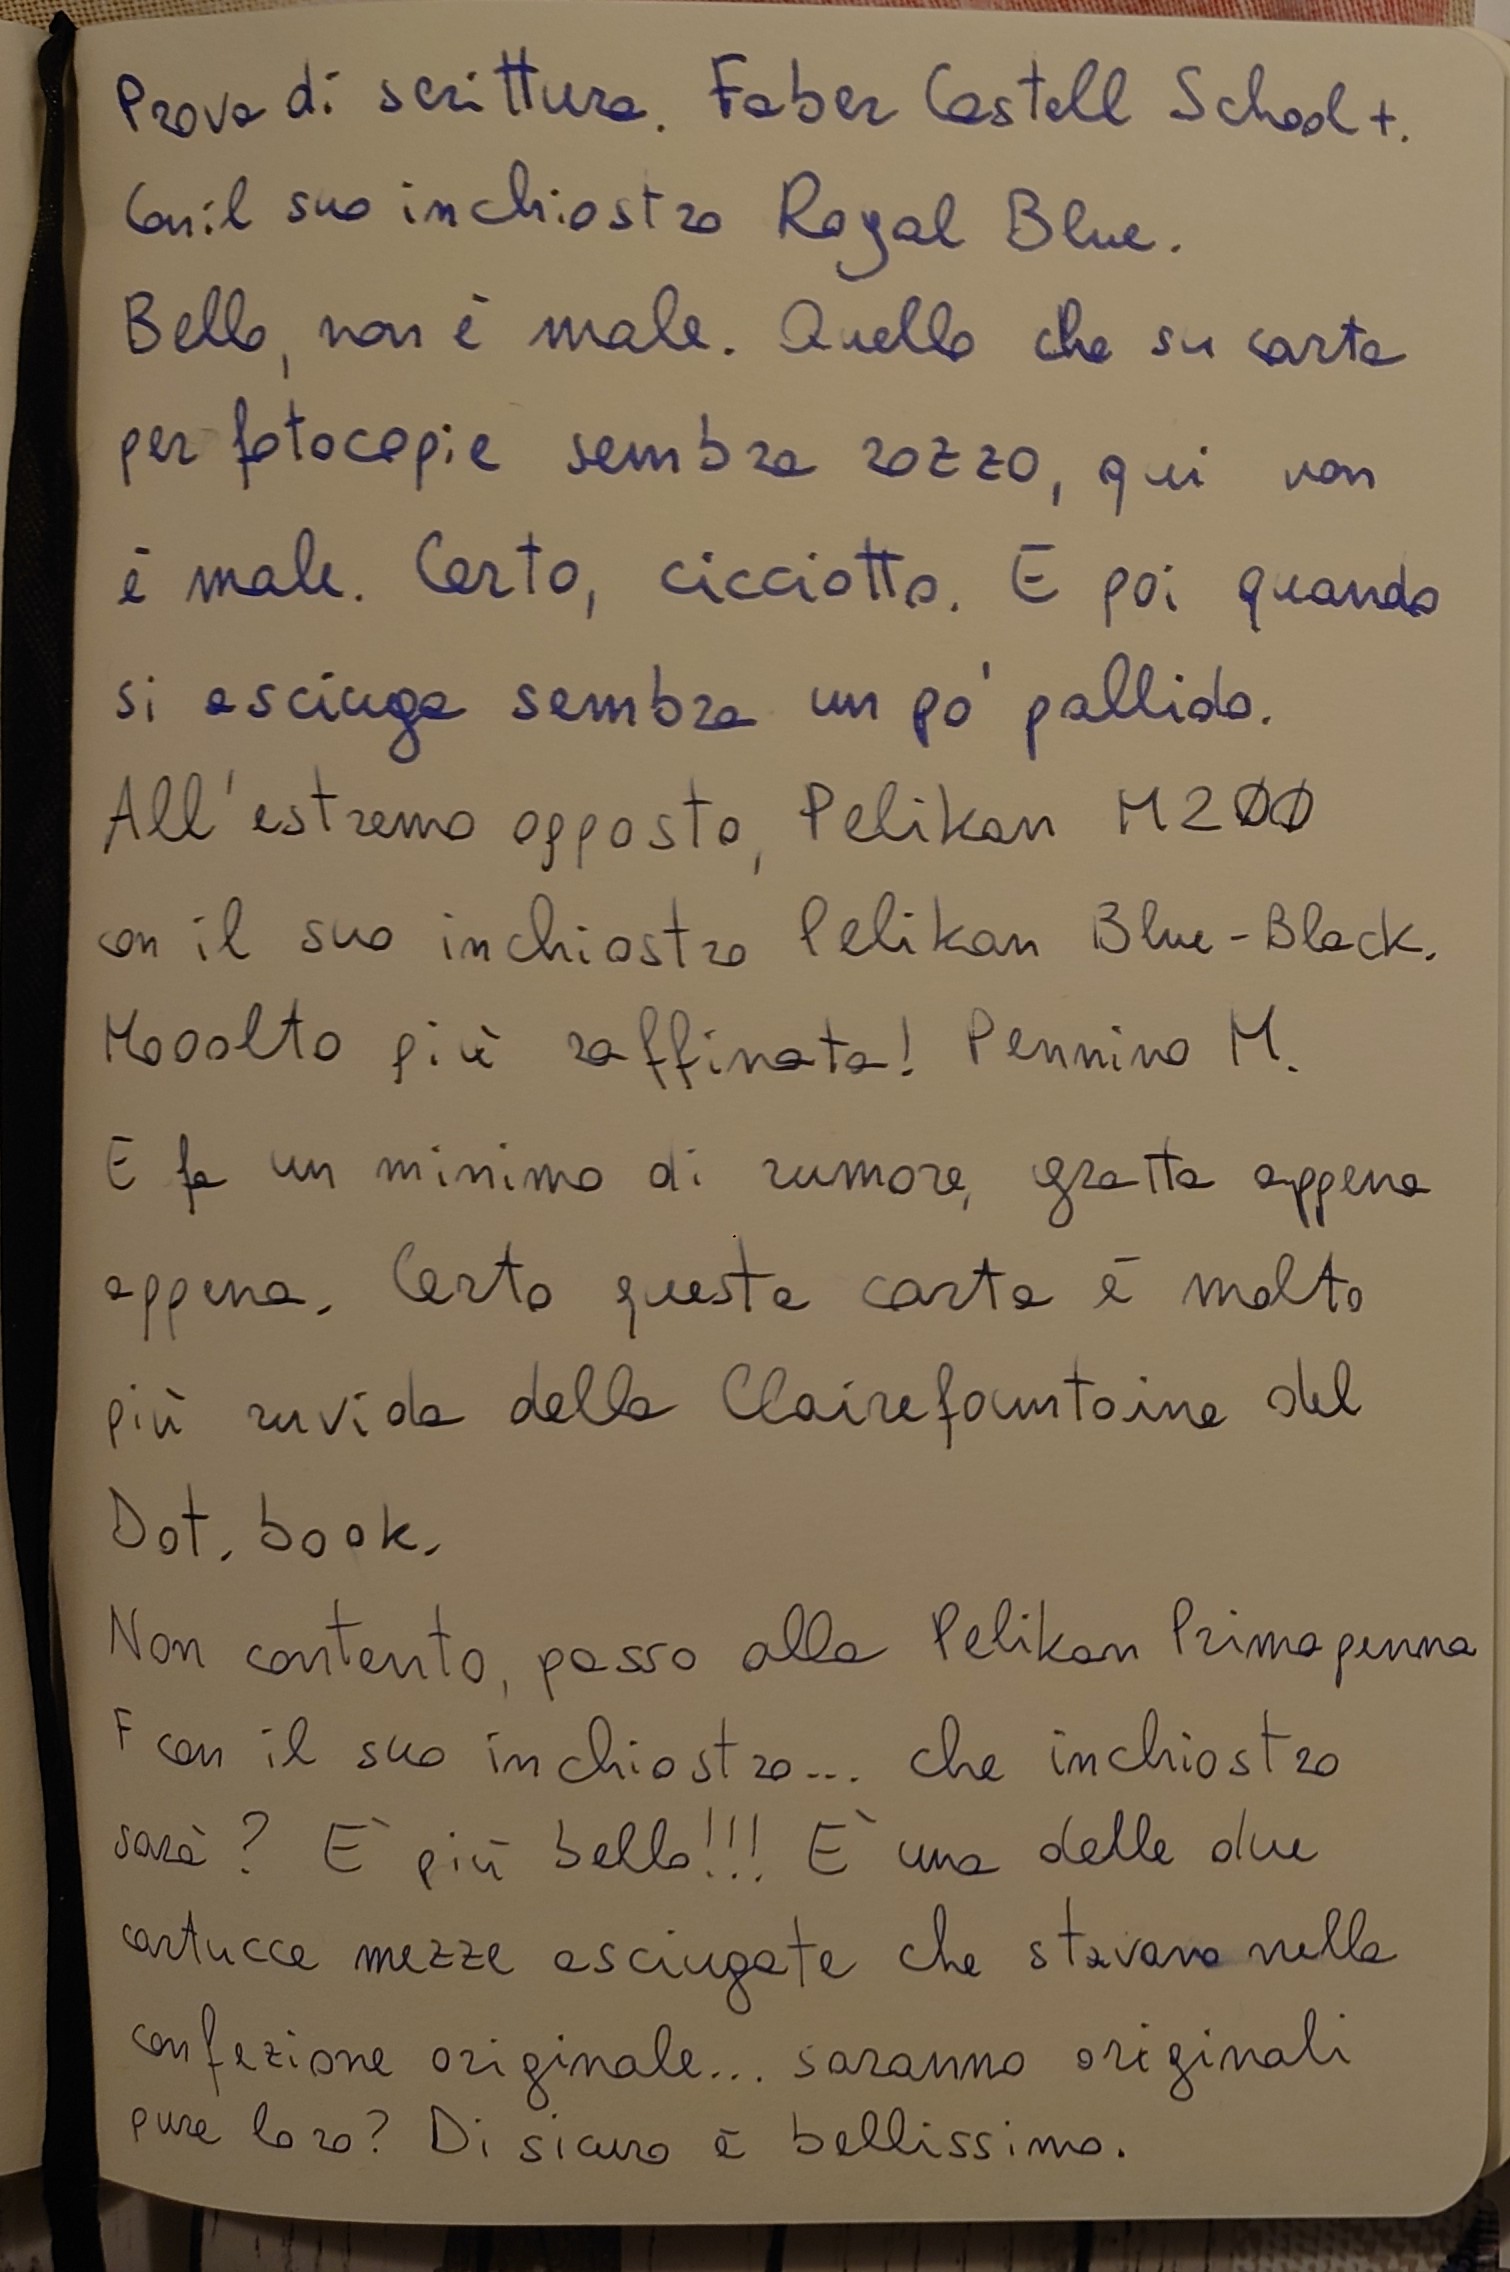 Prova di scrittura. Faber Castell School +.
Con il suo inchiostro Royal Blue.
Bello, non è male. Quello che su carta
per fotocopie sembra rozzo, qui non
è male. Certo, cicciotto. E poi quando
si asciuga sembra un po' pallido.
All'estremo opposto, Pelikan M200
con il suo inchiostro Pelikan Blue-Black.
Mooolto più raffinata! Pennino M.
E fa un minimo di rumore, gratta appena
appena. Certo questa carta è molto
più ruvida della Clairefountaine del
Dot. book.
Non contento, passo alla Pelikan Primapenna
F con il suo inchiostro... che inchiostro
sarà? È più bello!!! È una delle due
cartucce mezze asciugate che stavano nella
confezione originale... saranno originali
pure loro? Di sicuro è bellissimo.